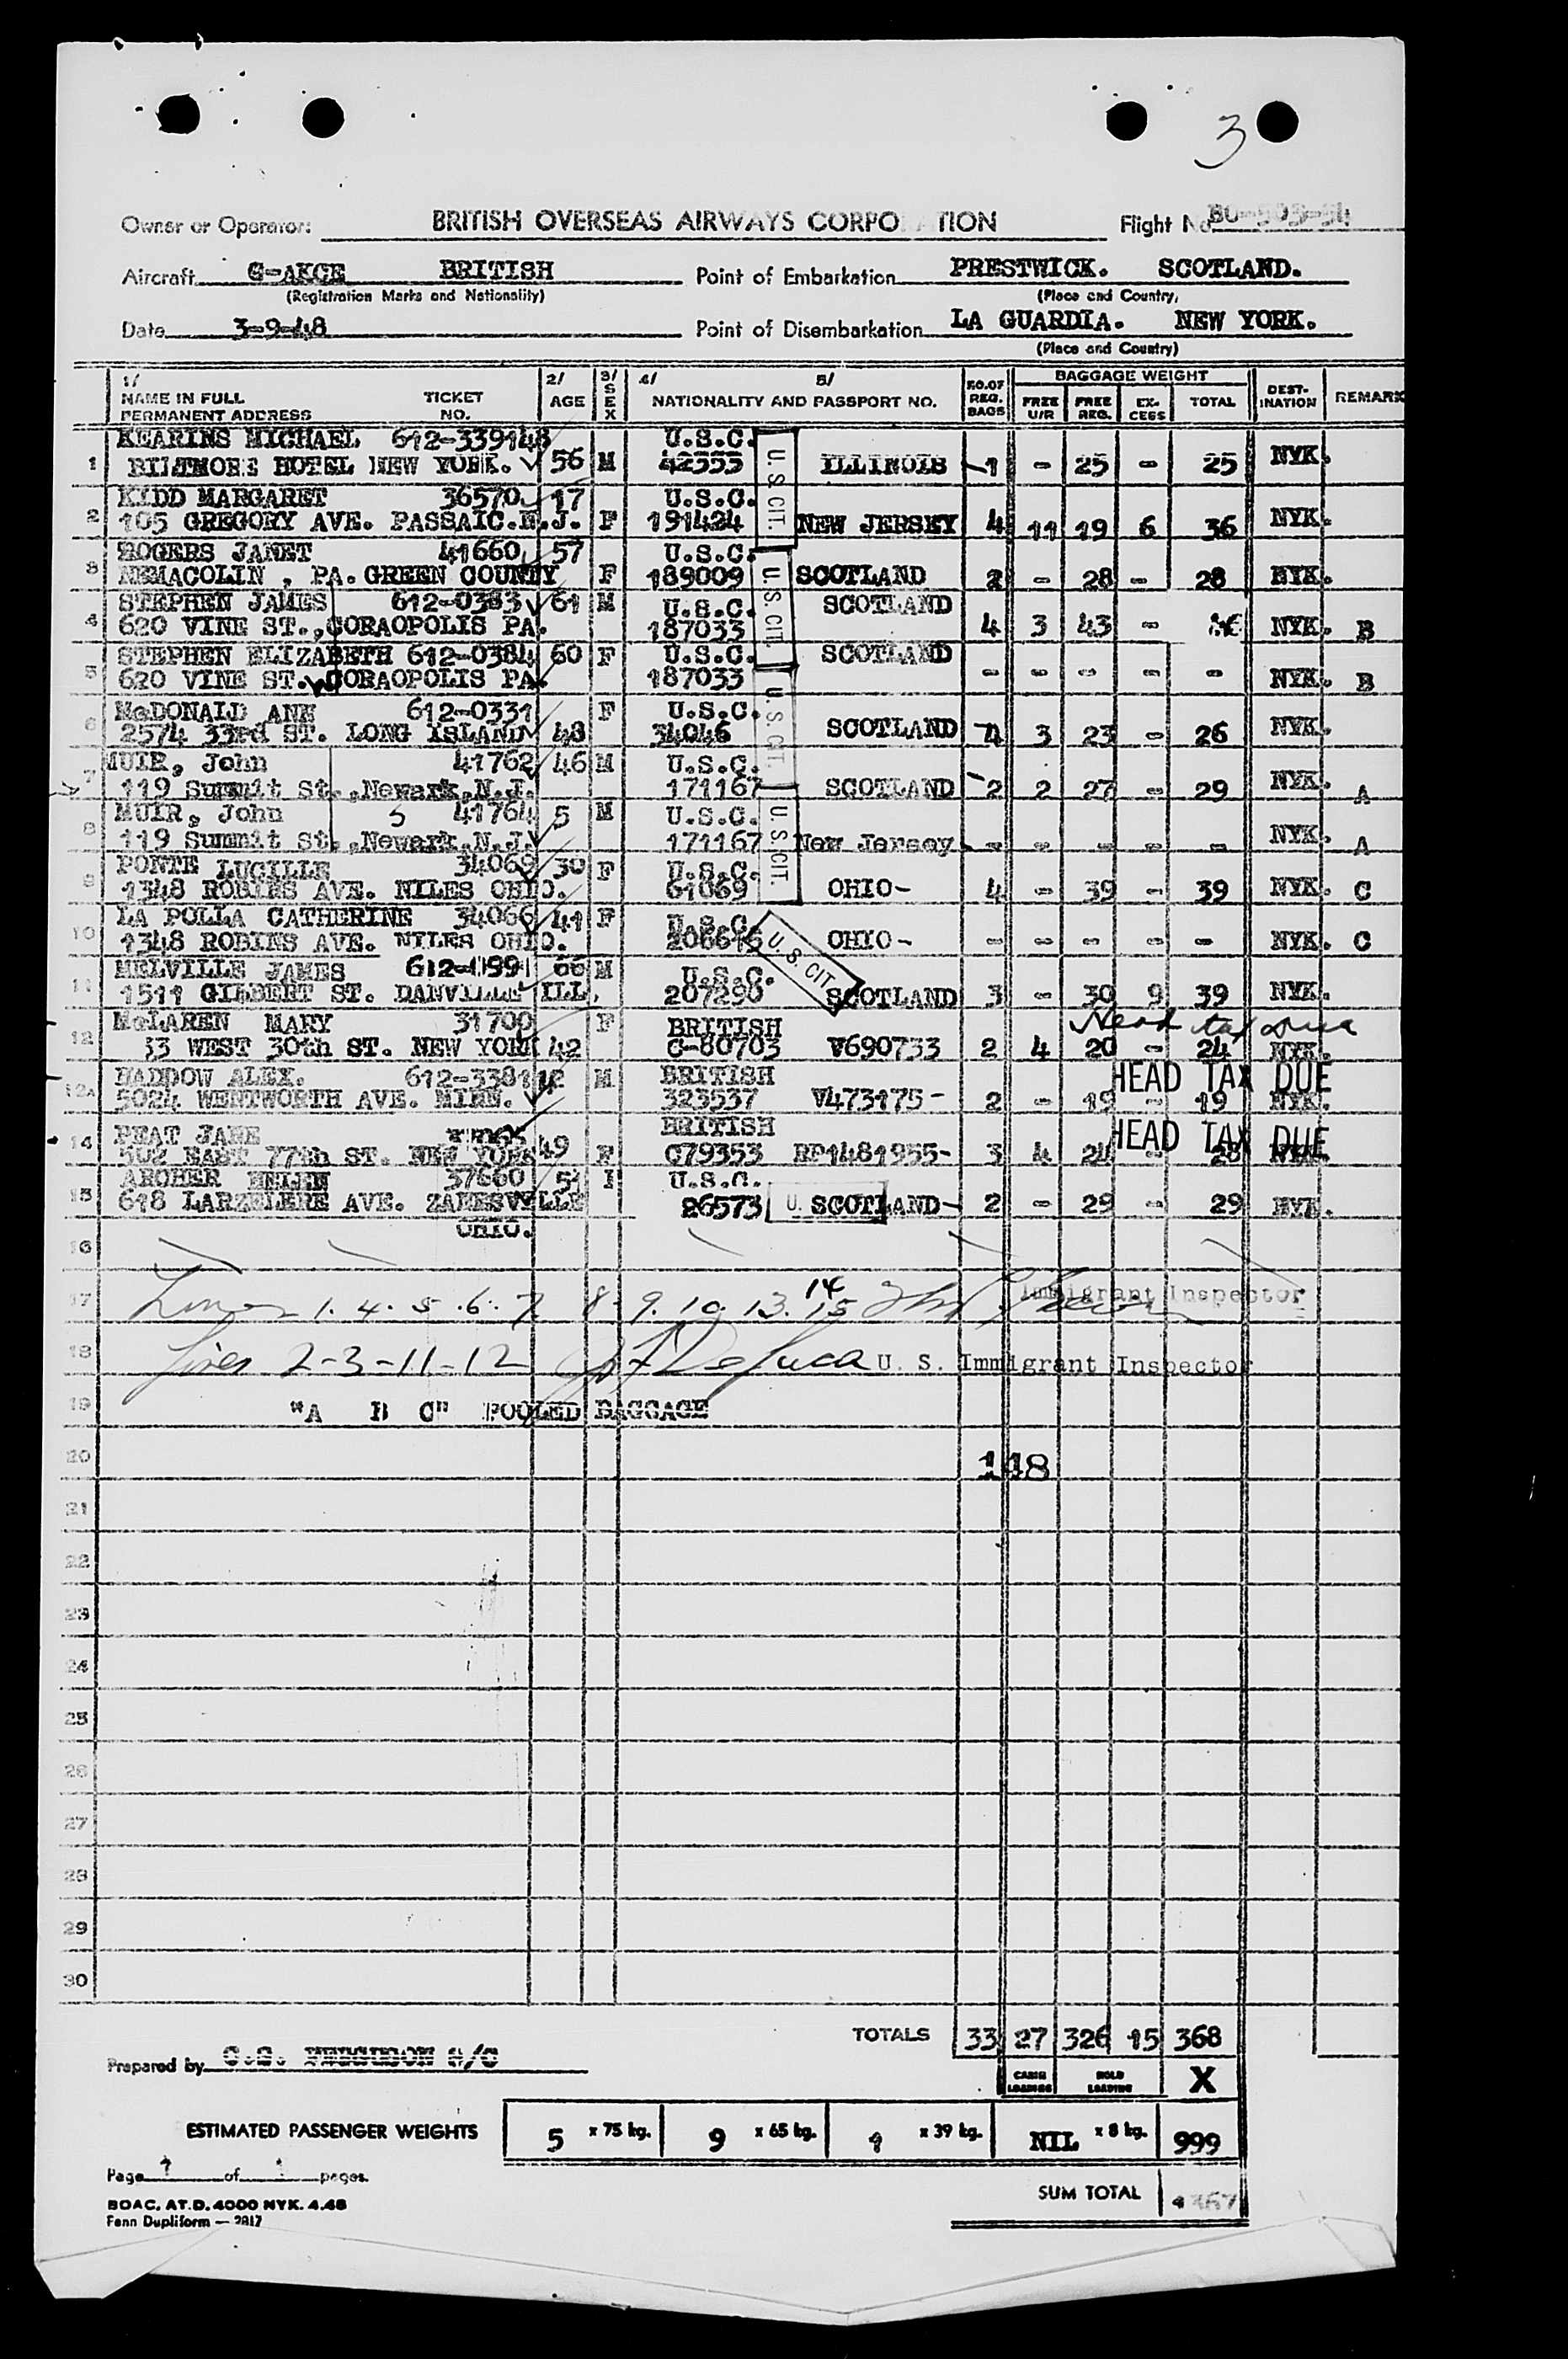 3
Owner or Operator: BRITISH OVERSEAS AIRWAYS CORPO ATION Flight No
Aircraft G-AKCE BRITISH Point of Embarkation PRESTWICK. SCOTLAND.
(Registration Marks and Nationality) (Place and Country)
Date 3-9-48 Point of Disembarkation LA GUARDIA. NEW YORK.
(Place and Country)
1/ NAME IN FULL PERMANENT ADDRESS TICKET NO. 2/ AGE 3/ SEX 4/ 5/ NATIONALITY AND PASSPORT NO. NO.OF REG. BAGS BAGGAGE WEIGHT FREE U/R FREE REG. EX- CESS TOTAL DEST- INATION REMARK
KEARINS MICHAEL 612-339148 U.S.C.
1 BILTMORE HOTEL NEW YORK. 56 M 42555 ILLINOIS 1 - 25 - 25 NYK.
KIDD MARGARET 36570 17 U.S.C.
2 105 GREGORY AVE. PASSAIC.N.J. F 191424 NEW JERSEY 4 11 19 6 36 NYK.
ROGERS JANET 41660 57 U.S.C.
3 NEMACOLIN , PA. GREEN COUNTY F 189009 SCOTLAND 2 - 28 - 28 NYK.
STEPHEN JAMES 612-0383 61 M U.S.C. SCOTLAND
4 620 VINE ST., CORAOPOLIS PA. 187033 4 3 43 - NYK. B
STEPHEN ELIZABETH 612-0384 60 F U.S.C. SCOTLAND
5 620 VINE ST. CORAOPOLIS PA. 187033 - - - - - NYK. B
McDONALD ANN 612-0331 F U.S.C.
6 2574 33rd ST. LONG ISLAND 48 34046 SCOTLAND 4 3 23 - 26 NYK.
MUIR, John 41762 46 M U.S.C.
7 119 Summit St.,Newark,N.J. 171167 SCOTLAND 2 2 27 - 29 NYK. A
MUIR, John 5 41764 5 M U.S.C.
8 119 Summit St.,Newark,N.J. 171167 New Jersey - - - - - NYK. A
PONTE LUCILLE 34069 30 F U.S.C.
9 1348 ROBINS AVE. NILES OHIO. 61069 OHIO- 4 - 39 - 39 NYK. C
LA POLLA CATHERINE 34066 41 F U.S.C.
10 1348 ROBINS AVE. NILES OHIO. OHIO- - - - - - NYK. C
MELVILLE JAMES 66 M U.S.C.
11 1511 GILBERT ST. DANVILLE ILL. 207290 SCOTLAND 3 - 30 9 39 NYK.
McLAREN MARY 31700 F BRITISH Head tax due
12 33 WEST 30th ST. NEW YORK 42 C-80703 V690733 2 4 20 - 24 NYK.
HADDOW ALEX. 612-3381 M BRITISH HEAD TAX DUE
12A 5024 WENTWORTH AVE. MINN. 323537 V473175- 2 - 19 - 19 NYK.
PEAT JANE BRITISH HEAD TAX DUE
14 502 EAST 77th ST. NEW YORK 49 F C79353 RP1481955- 3 4 24 - 28 NYK.
ARCHER HELEN 37660 51 U.S.C.
15 618 LARZELERE AVE. ZANESVILLE 26573 SCOTLAND- 2 - 29 - 29 NYK.
OHIO.
U. S. CIT.
U. S. CIT.
U. S. CIT.
U. S. CIT.
U. S. CIT.
U.
16
17 Lines 1. 4. 5. 6. 7 8. 9. 10. 13. 14 15 Immigrant Inspector
18 Lines 2-3-11-12 DeLuca U. S. Immigrant Inspector
19 "A B C" POOLED BAGGAGE
20 148
21
22
23
24
25
26
27
28
29
30
TOTALS 33 27 326 15 368
Prepared by FERGUSON CABIN LOADING HOLD LOADING X
ESTIMATED PASSENGER WEIGHTS 5 x 75 kg. 9 x 65 kg. 1 x 39 kg. NIL x 8 kg. 999
Page 1 of 1 pages.
SUM TOTAL 1367
BOAC. AT.D. 4000 NYK. 4.48
Fenn Dupliform — 2817